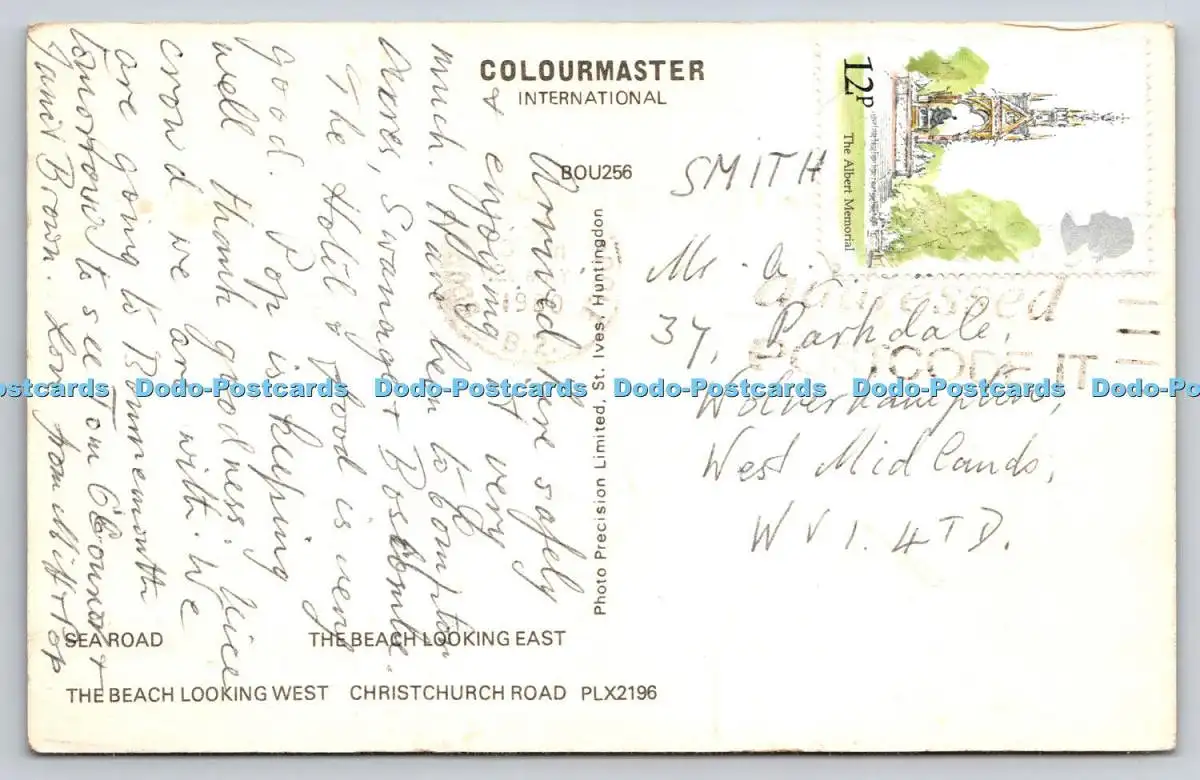 COLOURMASTER
INTERNATIONAL
BOU256
Arrived here safely
& enjoying it very
much. Have been to Compton
Acres, Swanage & Boscombe.
The Hotel & food is very
good. Pop is keeping
well thank goodness. Nice
crowd we are with. We
are going to Bournemouth
tomorrow to see Tom O'Connor &
Janie Brown. Love from Mitt & Pop
Photo Precision Limited, St. Ives, Huntingdon
12P
The Albert Memorial
SMITH
Mr. A.
37, Parkdale,
Wolverhampton,
West Midlands,
WV1. 4TD.
addressed
POSTCODE IT
SEA ROAD THE BEACH LOOKING EAST
THE BEACH LOOKING WEST CHRISTCHURCH ROAD PLX2196
Dodo-Postcards Dodo-Postcards Dodo-Postcards Dodo-Postcards Dodo-Postcards Dodo-Postcards